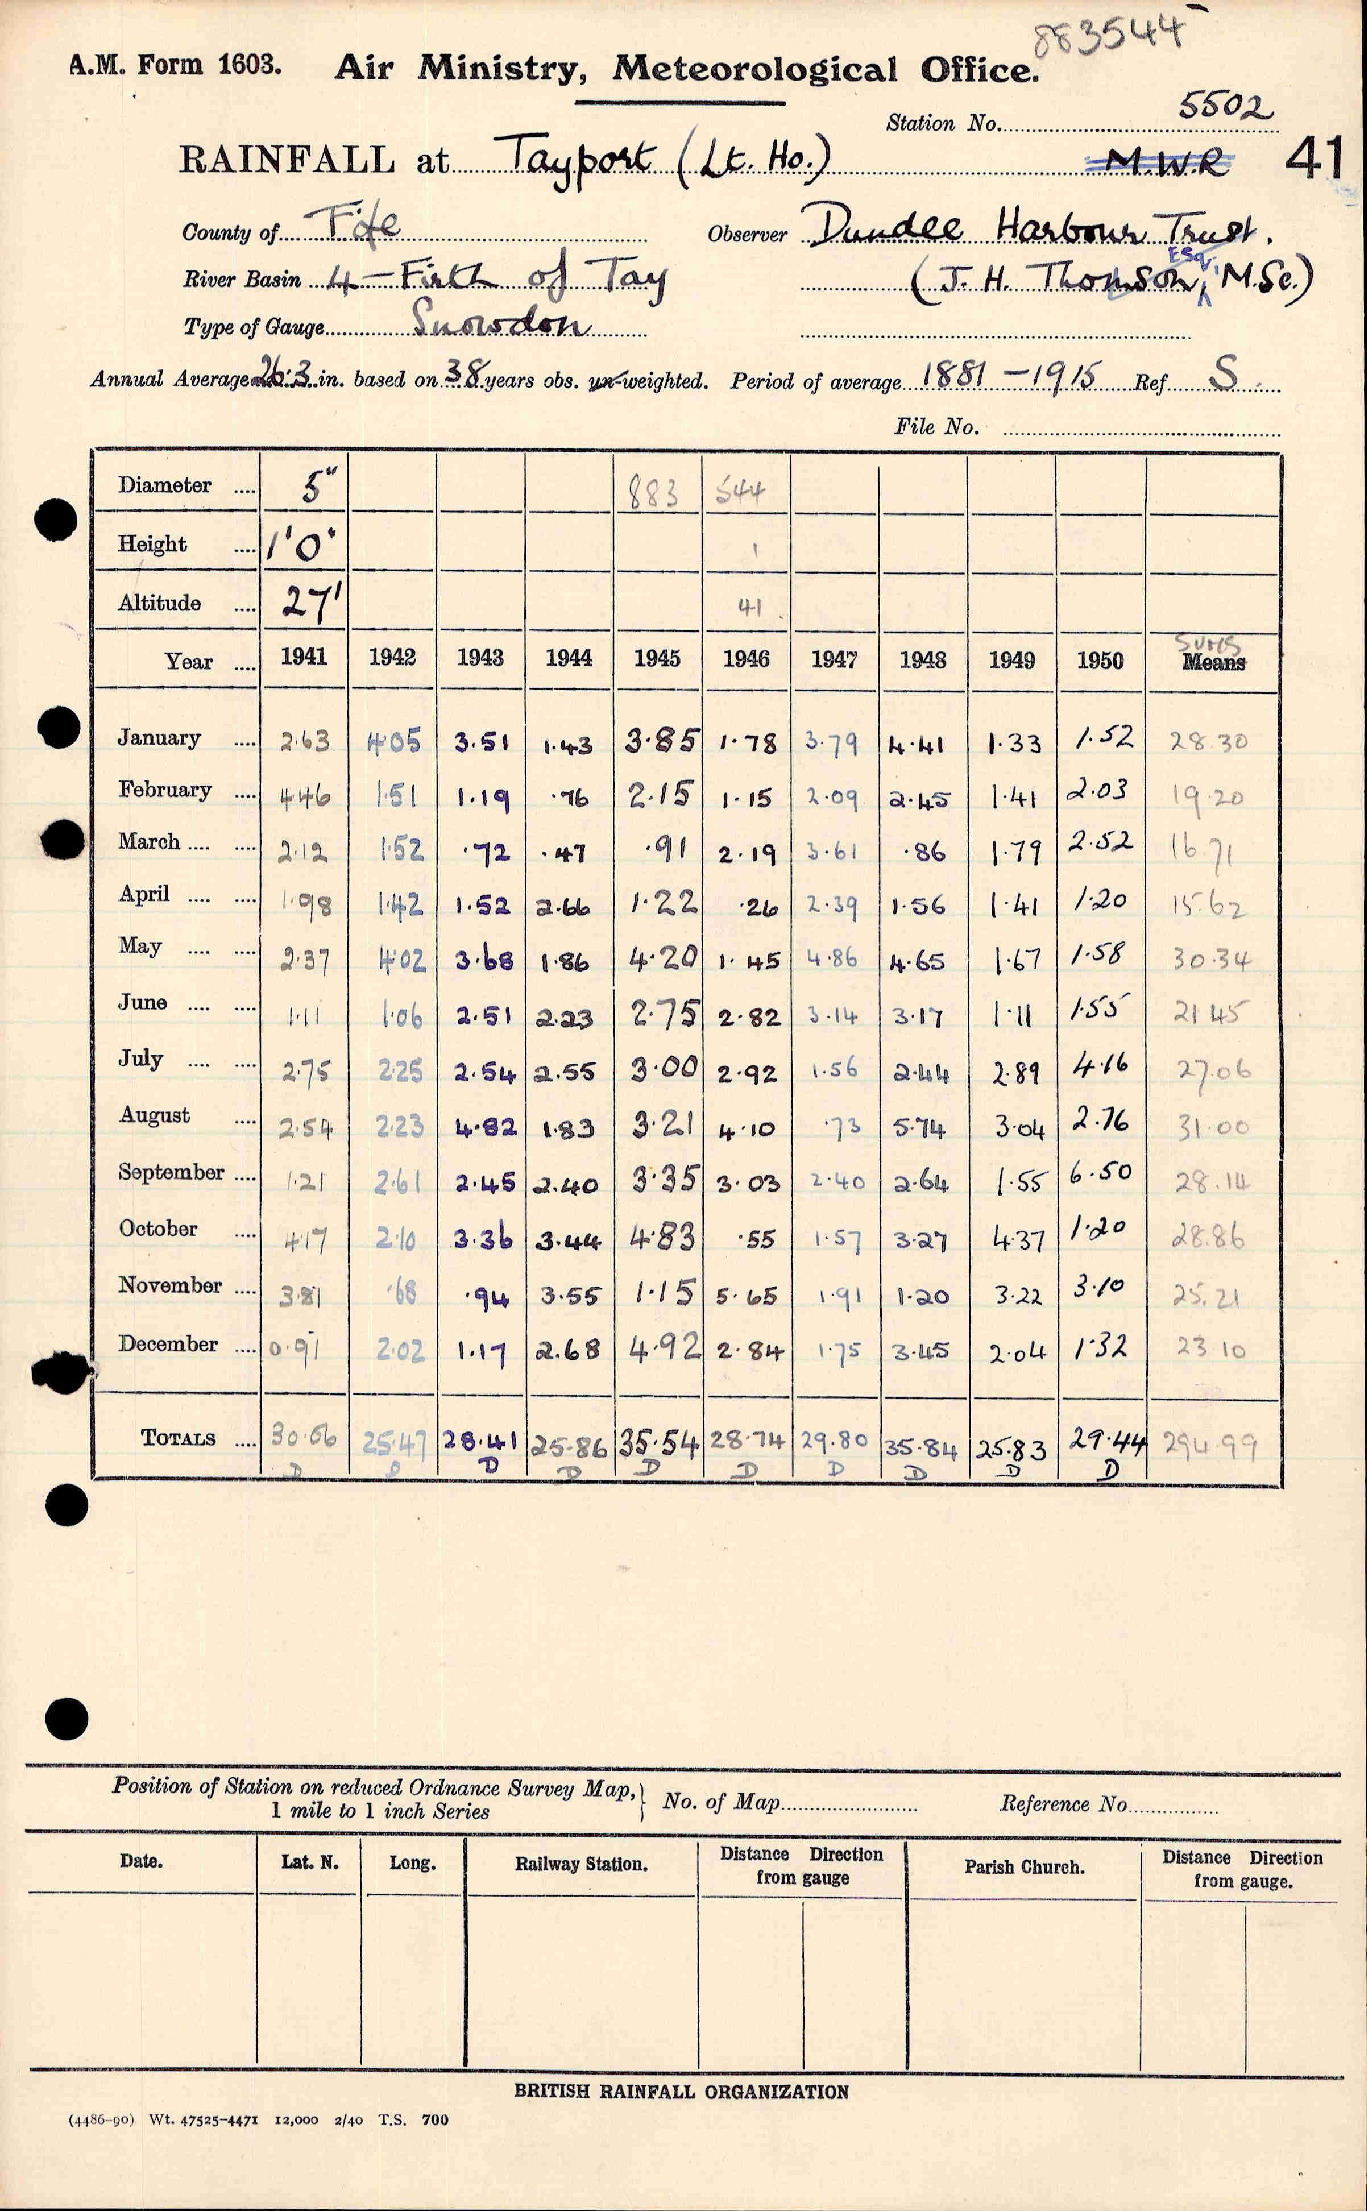 883544
A.M. Form 1603. Air Ministry, Meteorological Office.
Station No. 5502
RAINFALL at Tayport (Lt. Ho.) M.W.R 41
County of Fife Observer Dundee Harbour Trust.
River Basin 4 – Firth of Tay (J. H. Thomson, Esq. M.Sc.)
Type of Gauge Snowdon
Annual Average 26.3 in. based on 38 years obs. un-weighted. Period of average 1881 – 1915 Ref S
File No.
Diameter .... 5" 883 544
Height .... 1'0" 1
Altitude .... 27' 41
Sums
Year .... 1941 1942 1943 1944 1945 1946 1947 1948 1949 1950 Means
January .... 2.63 4.05 3.51 1.43 3.85 1.78 3.79 4.41 1.33 1.52 28.30
February .... 4.46 1.51 1.19 .76 2.15 1.15 2.09 2.45 1.41 2.03 19.20
March .... .... 2.12 1.52 .72 .47 .91 2.19 3.61 .86 1.79 2.52 16.71
April .... .... 1.98 1.42 1.52 2.66 1.22 .26 2.39 1.56 1.41 1.20 15.62
May .... .... 2.37 4.02 3.68 1.86 4.20 1.45 4.86 4.65 1.67 1.58 30.34
June .... .... 1.11 1.06 2.51 2.23 2.75 2.82 3.14 3.17 1.11 1.55 21.45
July .... .... 2.75 2.25 2.54 2.55 3.00 2.92 1.56 2.44 2.89 4.16 27.06
August .... 2.54 2.23 4.82 1.83 3.21 4.10 .73 5.74 3.04 2.76 31.00
September .... 1.21 2.61 2.45 2.40 3.35 3.03 2.40 2.64 1.55 6.50 28.14
October .... 4.17 2.10 3.36 3.44 4.83 .55 1.57 3.27 4.37 1.20 28.86
November .... 3.81 .68 .94 3.55 1.15 5.65 1.91 1.20 3.22 3.10 25.21
December .... 0.91 2.02 1.17 2.68 4.92 2.84 1.75 3.45 2.04 1.32 23.10
TOTALS .... 30.06 25.47 28.41 25.86 35.54 28.74 29.80 35.84 25.83 29.44 294.99
D D D D D D D D D D
Position of Station on reduced Ordnance Survey Map, } No. of Map Reference No.
1 mile to 1 inch Series
Date. Lat. N. Long. Railway Station. Distance Direction from gauge Parish Church. Distance Direction from gauge.
BRITISH RAINFALL ORGANIZATION
(4486–90) Wt. 47525–4471 12,000 2/40 T.S. 700